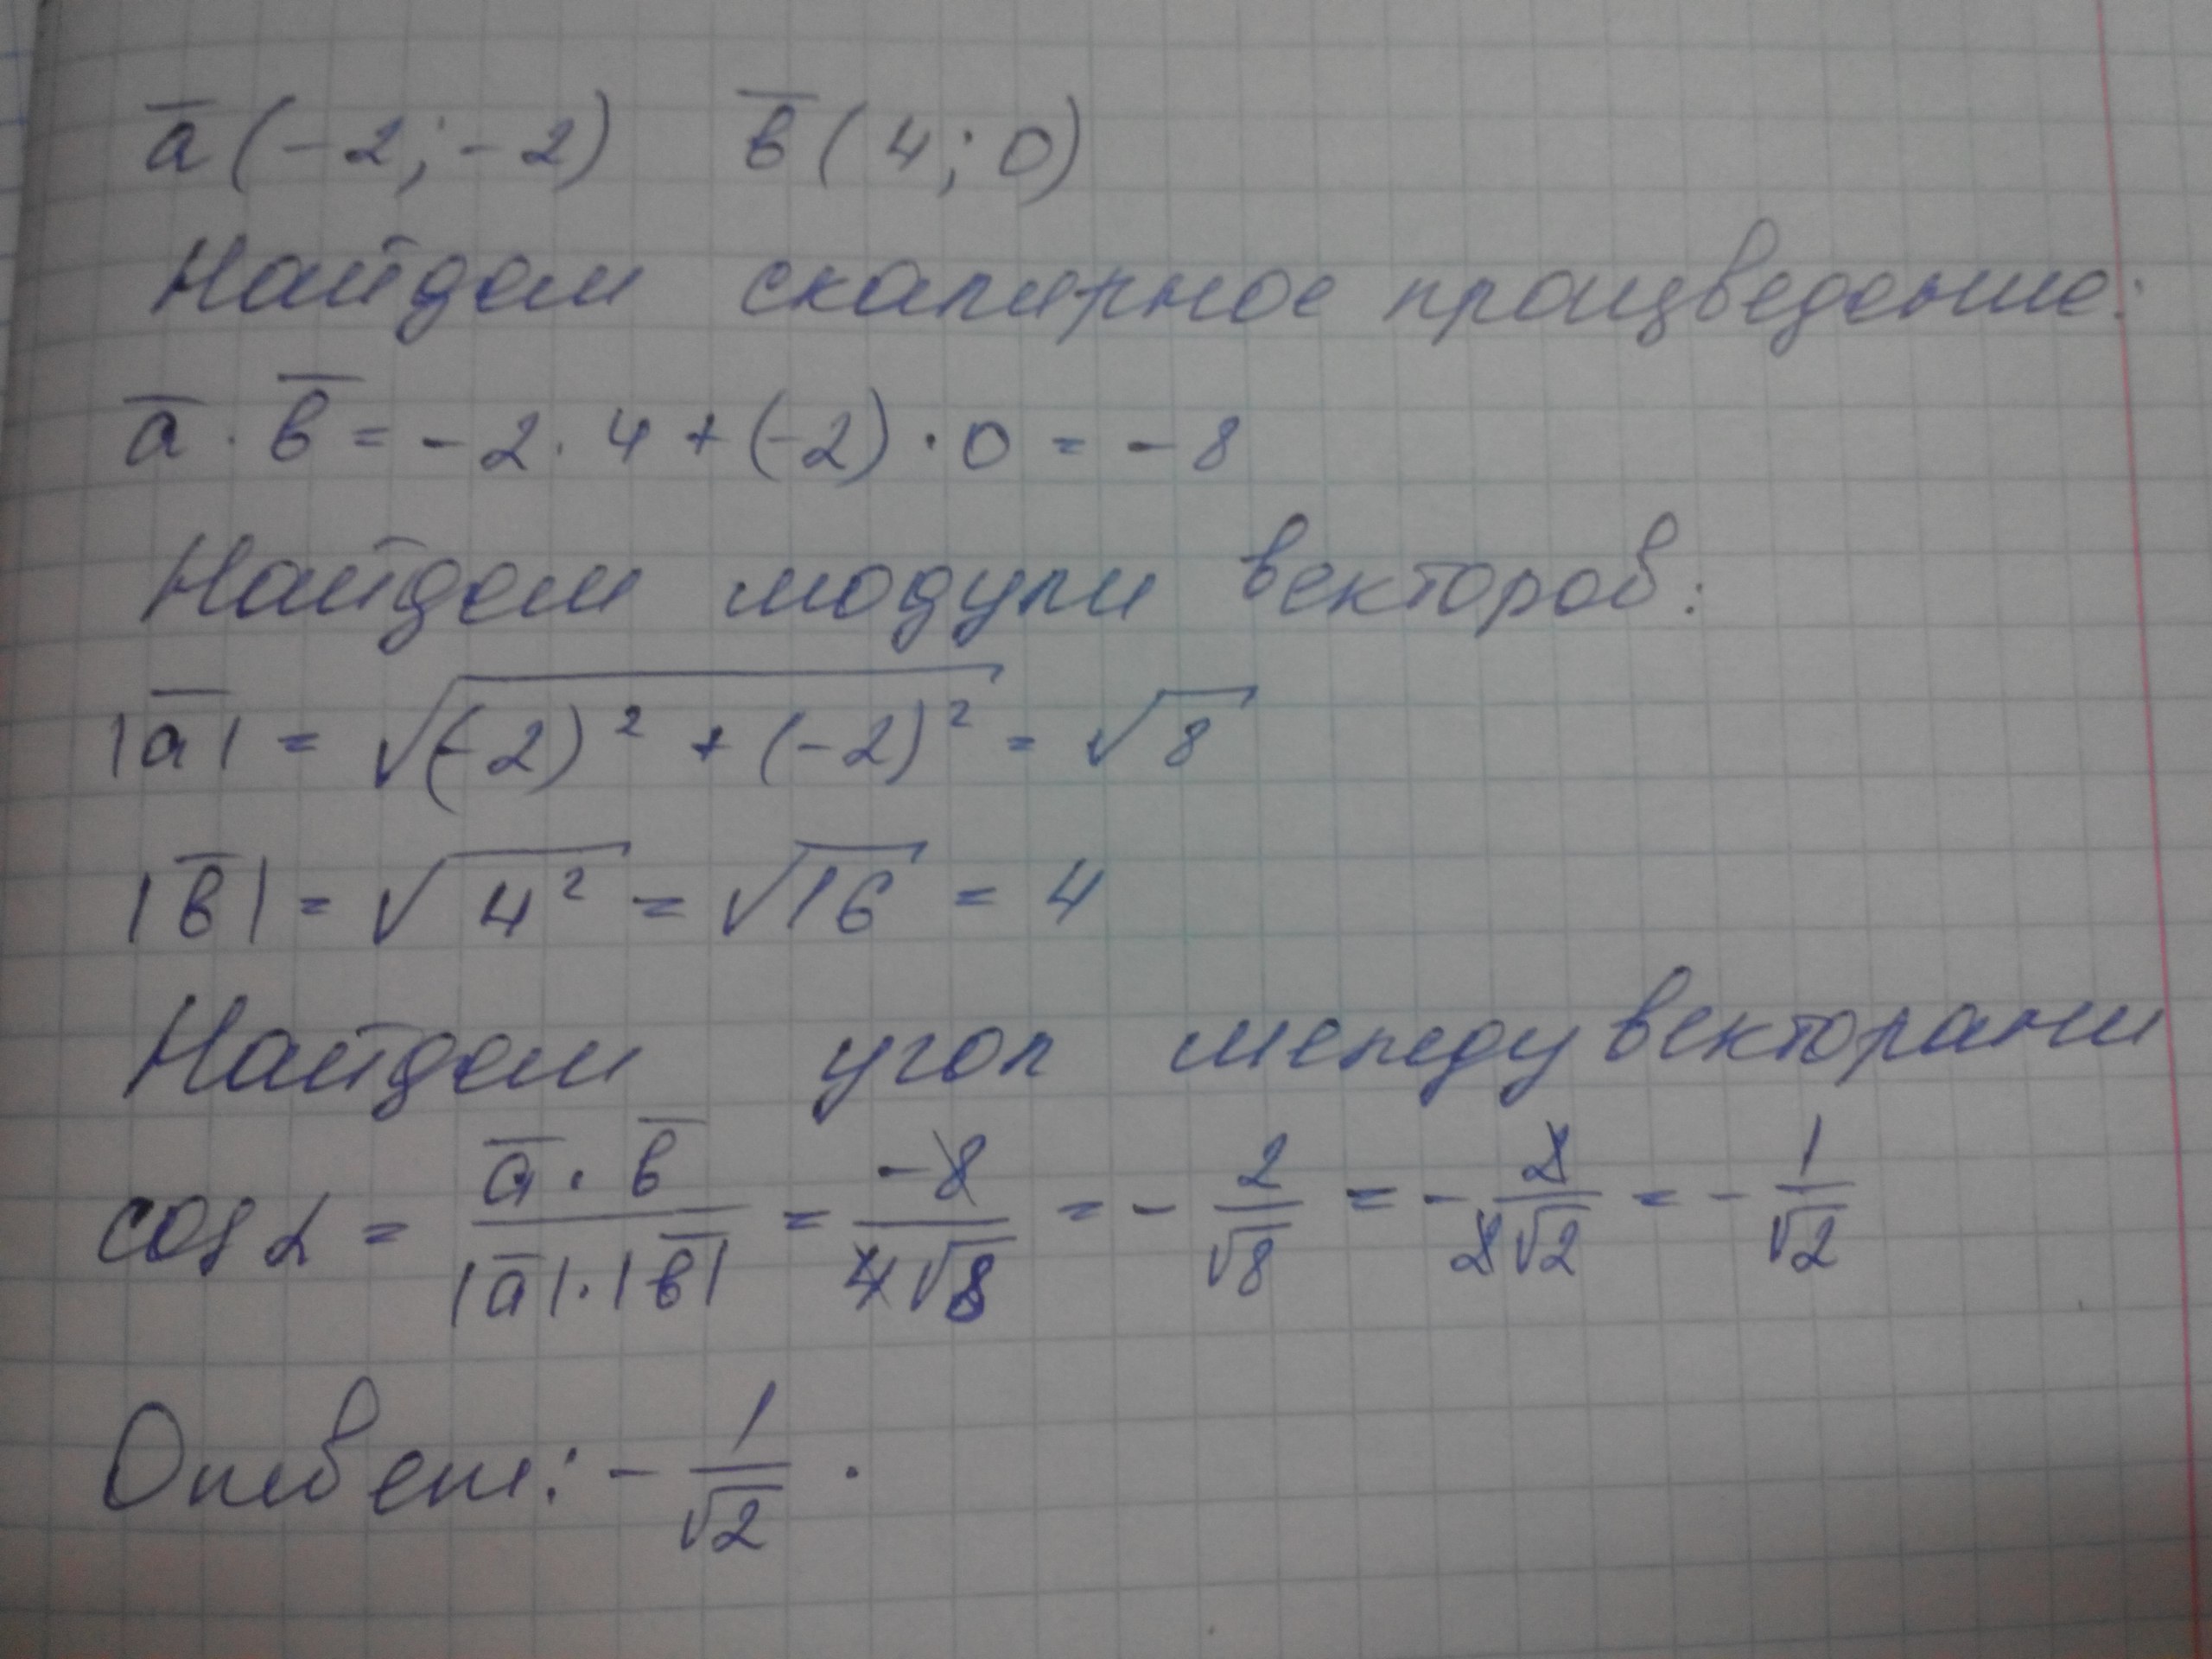 a̅ (-2; -2) в̅ (4; 0)
Найдем скалярное произведение:
a̅ · в̅ = -2 · 4 + (-2) · 0 = -8
Найдем модули векторов:
|a̅| = √((-2)² + (-2)²) = √8
|в̅| = √(4²) = √16 = 4
Найдем угол между векторами
cos α = (a̅ · в̅)/(|a̅| · |в̅|) = -8/(4√8) = -2/√8 = -2/(2√2) = -1/√2
Ответ: -1/√2 .